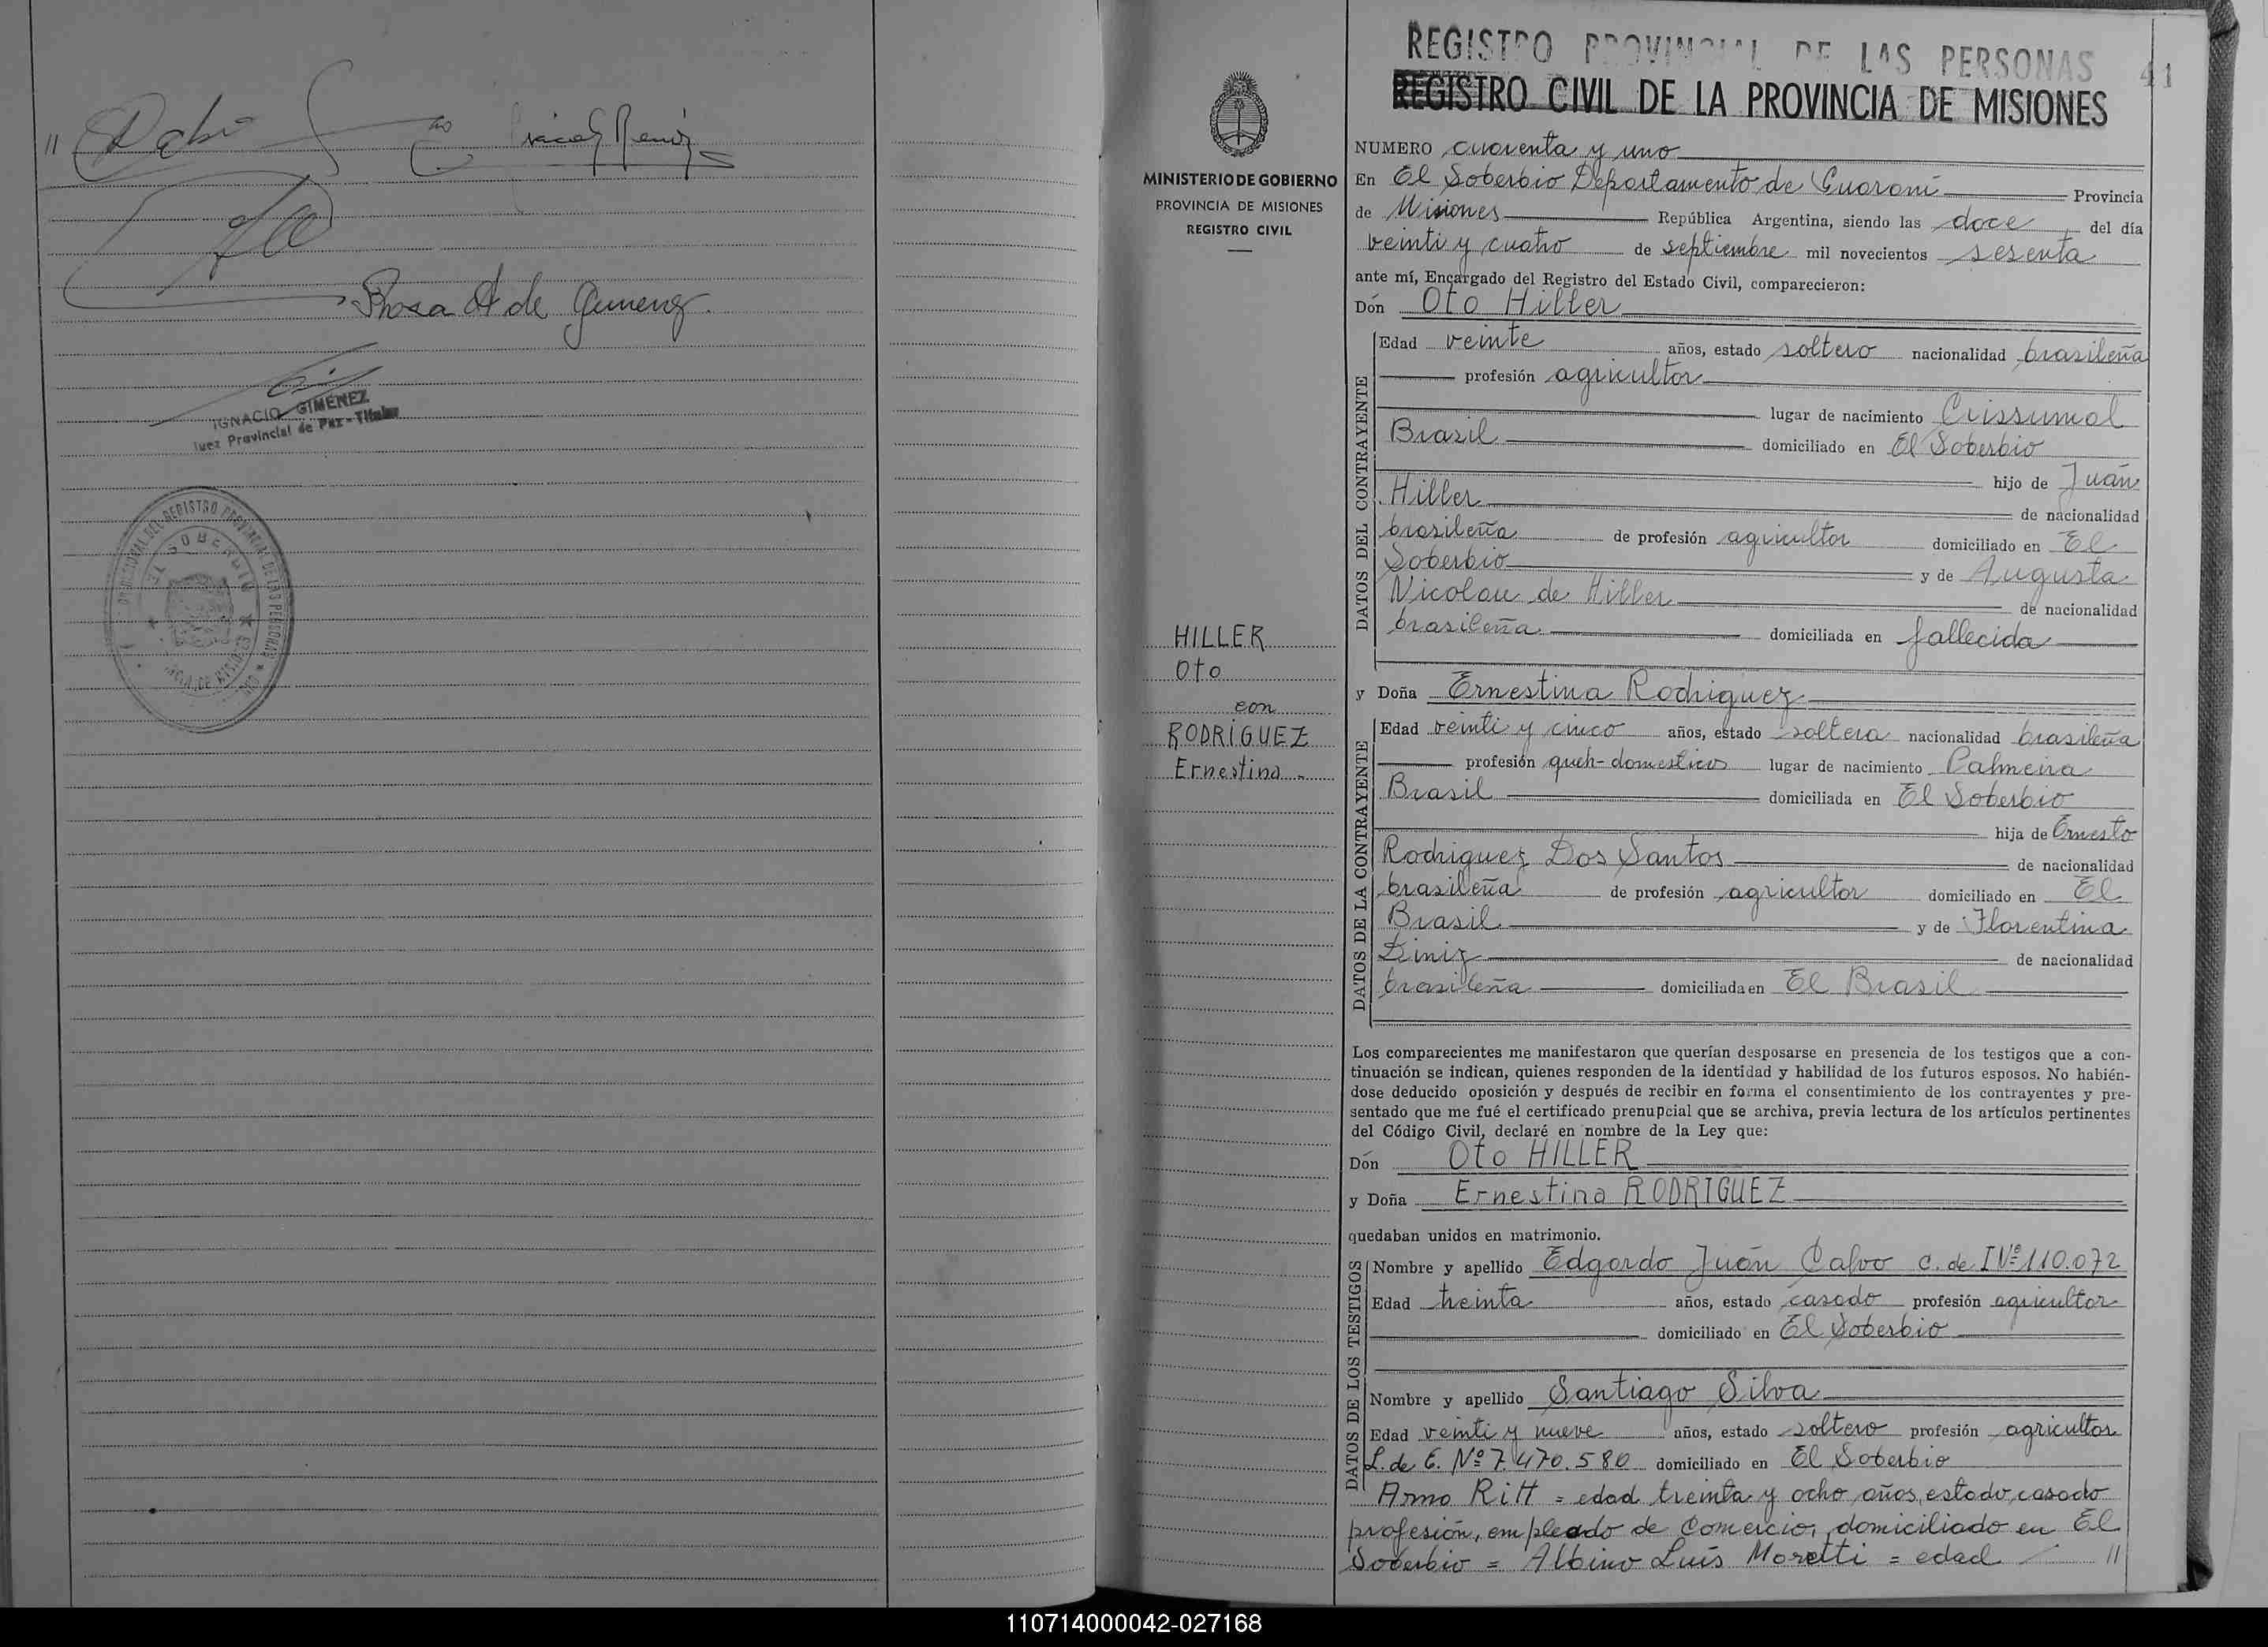 Rosa A de Gimenez.
IGNACIO GIMENEZ
Juez Provincial de Paz - Titular
EL SOBERBIO
MINISTERIO DE GOBIERNO
PROVINCIA DE MISIONES
REGISTRO CIVIL
HILLER
Oto
con
RODRIGUEZ
Ernestina
REGISTRO PROVINCIAL DE LAS PERSONAS
41
REGISTRO CIVIL DE LA PROVINCIA DE MISIONES
NUMERO cuarenta y uno
En El Soberbio Departamento de Guaraní Provincia
de Misiones República Argentina, siendo las doce del día
veinti y cuatro de septiembre mil novecientos sesenta
ante mí, Encargado del Registro del Estado Civil, comparecieron:
Dón Oto Hiller
Edad veinte años, estado soltero nacionalidad brasileña
profesión agricultor
lugar de nacimiento Crissumal
Brasil domiciliado en El Soberbio
hijo de Juán
Hiller de nacionalidad
brasileña de profesión agricultor domiciliado en El
Soberbio y de Augusta
Nicolau de Hiller de nacionalidad
brasileña domiciliada en fallecida
DATOS DEL CONTRAYENTE
y Doña Ernestina Rodriguez
Edad veinti y cinco años, estado soltera nacionalidad brasileña
profesión queh-domesticos lugar de nacimiento Palmeira
Brasil domiciliada en El Soberbio
hija de Ernesto
Rodriguez Dos Santos de nacionalidad
brasileña de profesión agricultor domiciliado en El
Brasil y de Florentina
Diniz de nacionalidad
brasileña domiciliada en El Brasil
DATOS DE LA CONTRAYENTE
Los comparecientes me manifestaron que querían desposarse en presencia de los testigos que a con-
tinuación se indican, quienes responden de la identidad y habilidad de los futuros esposos. No habién-
dose deducido oposición y después de recibir en forma el consentimiento de los contrayentes y pre-
sentado que me fué el certificado prenupcial que se archiva, previa lectura de los artículos pertinentes
del Código Civil, declaré en nombre de la Ley que:
Dón Oto HILLER
y Doña Ernestina RODRIGUEZ
quedaban unidos en matrimonio.
Nombre y apellido Edgardo Juán Calvo C. de I Nº 110.072
Edad treinta años, estado casado profesión agricultor
domiciliado en El Soberbio
Nombre y apellido Santiago Silva
Edad veinti y nueve años, estado soltero profesión agricultor
L. de E. Nº 7.470.580 domiciliado en El Soberbio
DATOS DE LOS TESTIGOS
Arno Ritt = edad treinta y ocho años, estado, casado
profesión, empleado de Comercio, domiciliado en El
Soberbio = Albino Luís Moretti = edad //
110714000042-027168